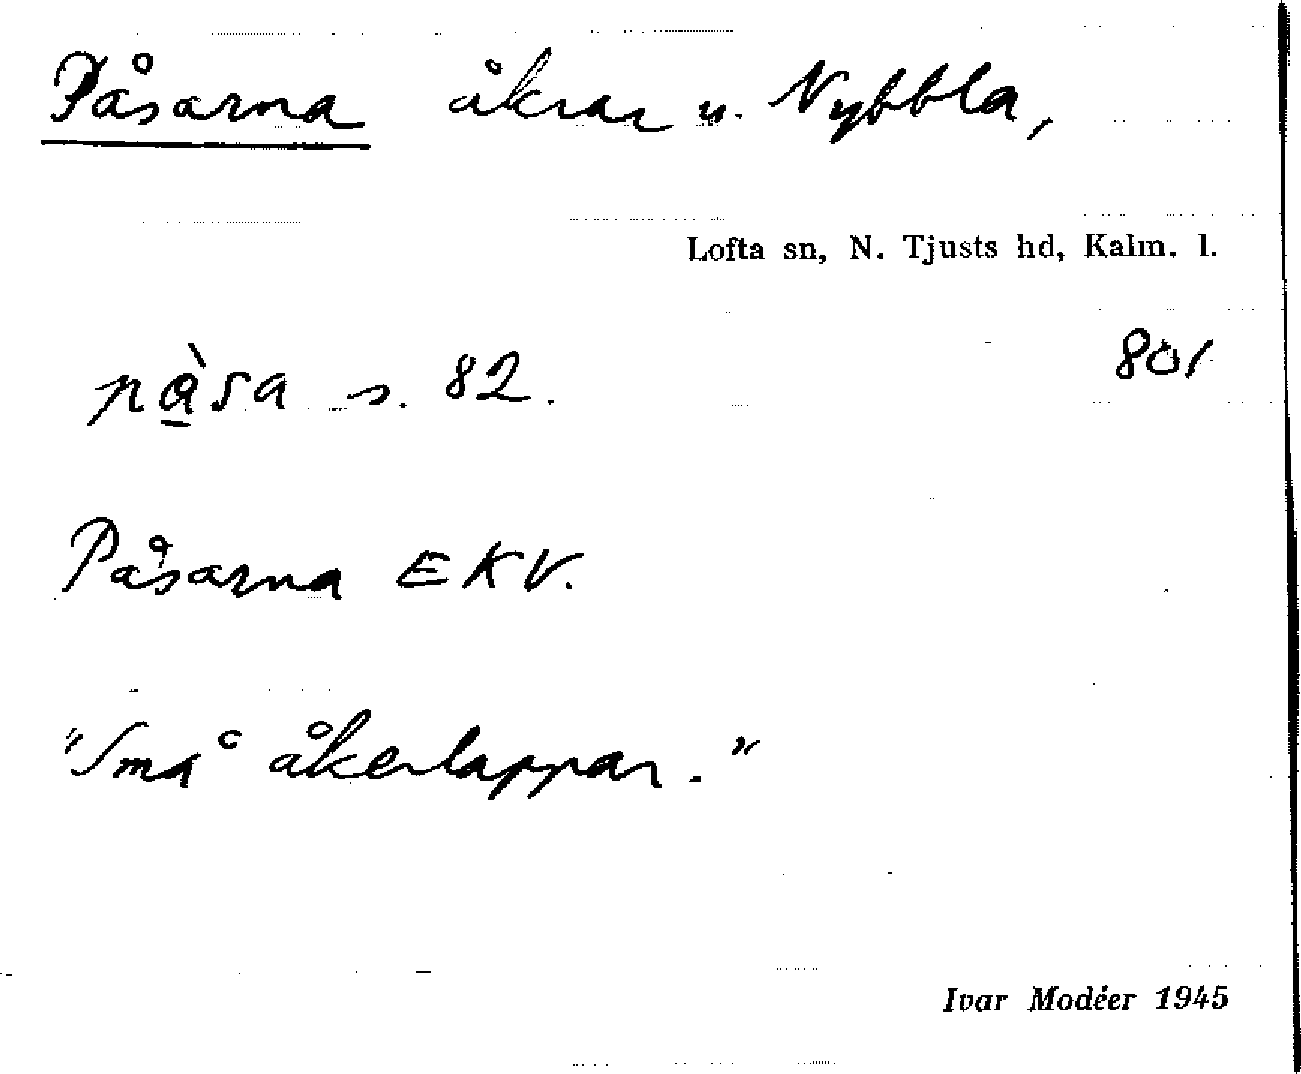 Påsarna åkrar u. Nybbla,
Lofta sn, N. Tjusts hd, Kalm. l.
pà̱sa s. 82. 801
Påsarna EKV.
"Små åkerlappar."
Ivar Modéer 1945